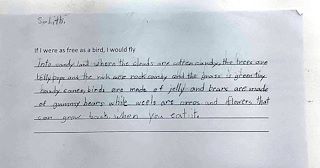 If I were as free as a bird, I would fly
Into candy land where the clouds are cotton candy, the trees are
lollypops and the rock are rock candy and the grass is green tiny
candy canes, birds are made of jelly and bears are made
of gummy bears while are and flowers that
can grow back when you eat it.